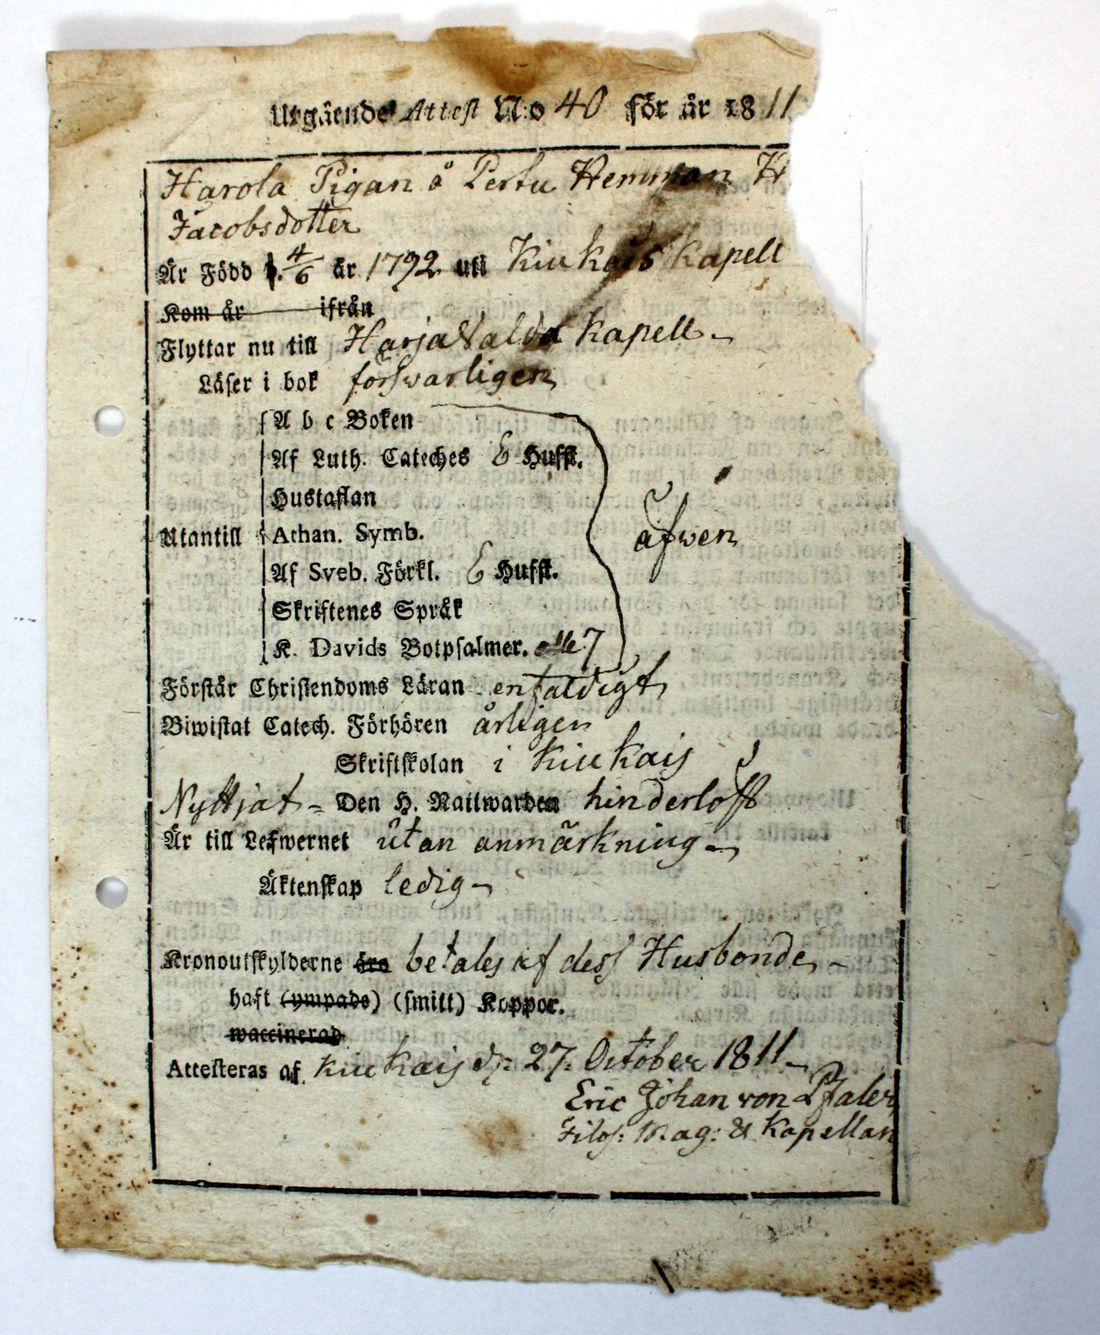 Utgående Attest N:o 40 för år 1811
Harola Pigan å Pertu Hemman H
Jacobsdotter
Är Född d. 4/6 år 1792 uti Kiukais Kapell
Kom år ifrån
Flyttar nu till Harjavalda Kapell
Läser i bok försvarligen
A b c Boken
Af Luth. Cateches & Hufst.
Hustaflan
Utantill Athan. Symb. äfwen
Af Sveb. Förkl. & Hufst.
Skriftenes Språk
K. Davids Botpsalmer. alle 7
Förstår Christendoms Läran enfaldigt
Biwistat Catech. Förhören årligen
Skriftskolan i Kiukais
Nyttjat Den H. Nattwarden hinderlöst
Är till Lefwernet utan anmärkning
Äktenskap ledig
Kronoutskylderne äro betales af dess Husbonde
haft (ympade) (smitt) Koppor.
waccinerad
Attesteras af Kiukais d: 27. October 1811
Eric Johan von Pfaler
Filos: Mag: & Kapellan